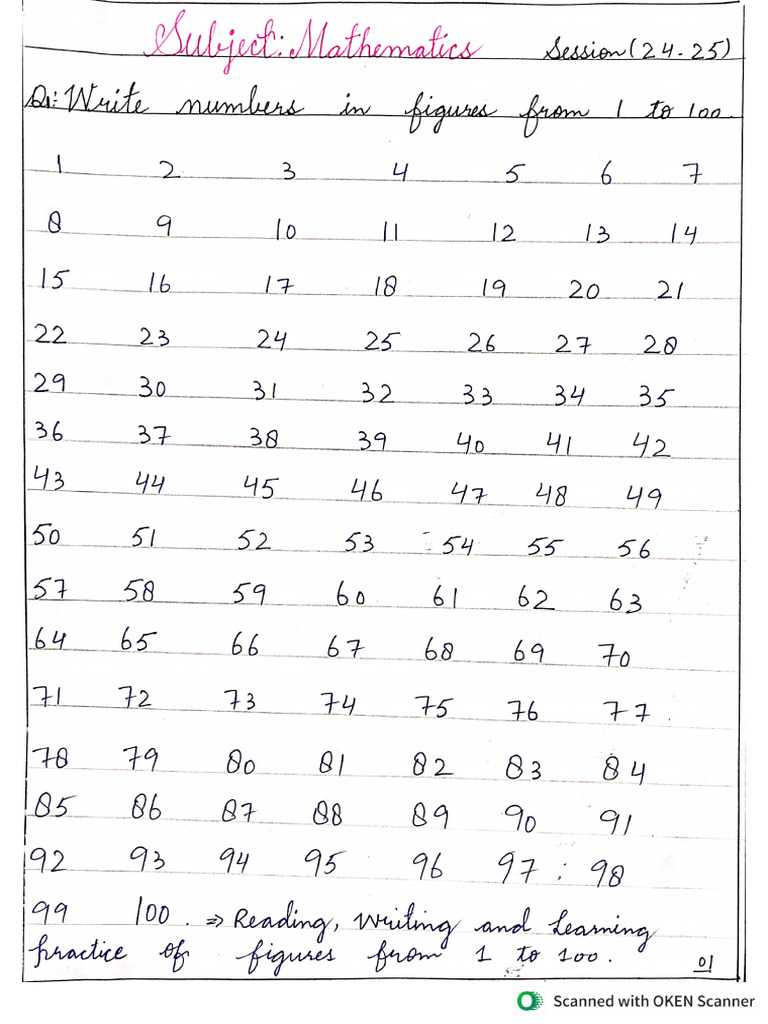 Subject: Mathematics Session (24-25)
Q1: Write numbers in figures from 1 to 100.
1 2 3 4 5 6 7
8 9 10 11 12 13 14
15 16 17 18 19 20 21
22 23 24 25 26 27 28
29 30 31 32 33 34 35
36 37 38 39 40 41 42
43 44 45 46 47 48 49
50 51 52 53 54 55 56
57 58 59 60 61 62 63
64 65 66 67 68 69 70
71 72 73 74 75 76 77
78 79 80 81 82 83 84
85 86 87 88 89 90 91
92 93 94 95 96 97 98
99 100. ⇒ Reading, Writing and Learning
practice of figures from 1 to 100.
01
Scanned with OKEN Scanner